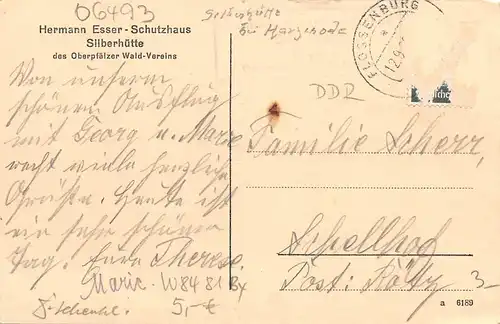 06493
Silberhütte
bei Harzgerode
Hermann Esser-Schutzhaus
Silberhütte
des Oberpfälzer Wald-Vereins
FLOSSENBÜRG
12.9.
DDR
Von unserem
schönen Ausflug
mit Georg u. Marie
recht viele herzliche
Grüße. Heute ist
ein sehr schöner
Tag. Eure Therese.
Marie.
W84 81
5,-€
Familie Scherr,
Schellhof
Post: Rötz
3
a 6189